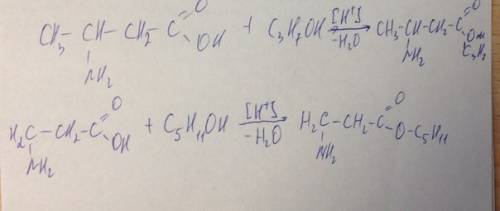 CH₃-CH-CH₂-C(=O)-OH + C₃H₇OH →[H⁺] -H₂O CH₃-CH-CH₂-C(=O)-O-C₃H₇
NH₂ NH₂
H₂C-CH₂-C(=O)-OH + C₅H₁₁OH →[H⁺] -H₂O H₂C-CH₂-C(=O)-O-C₅H₁₁
NH₂ NH₂